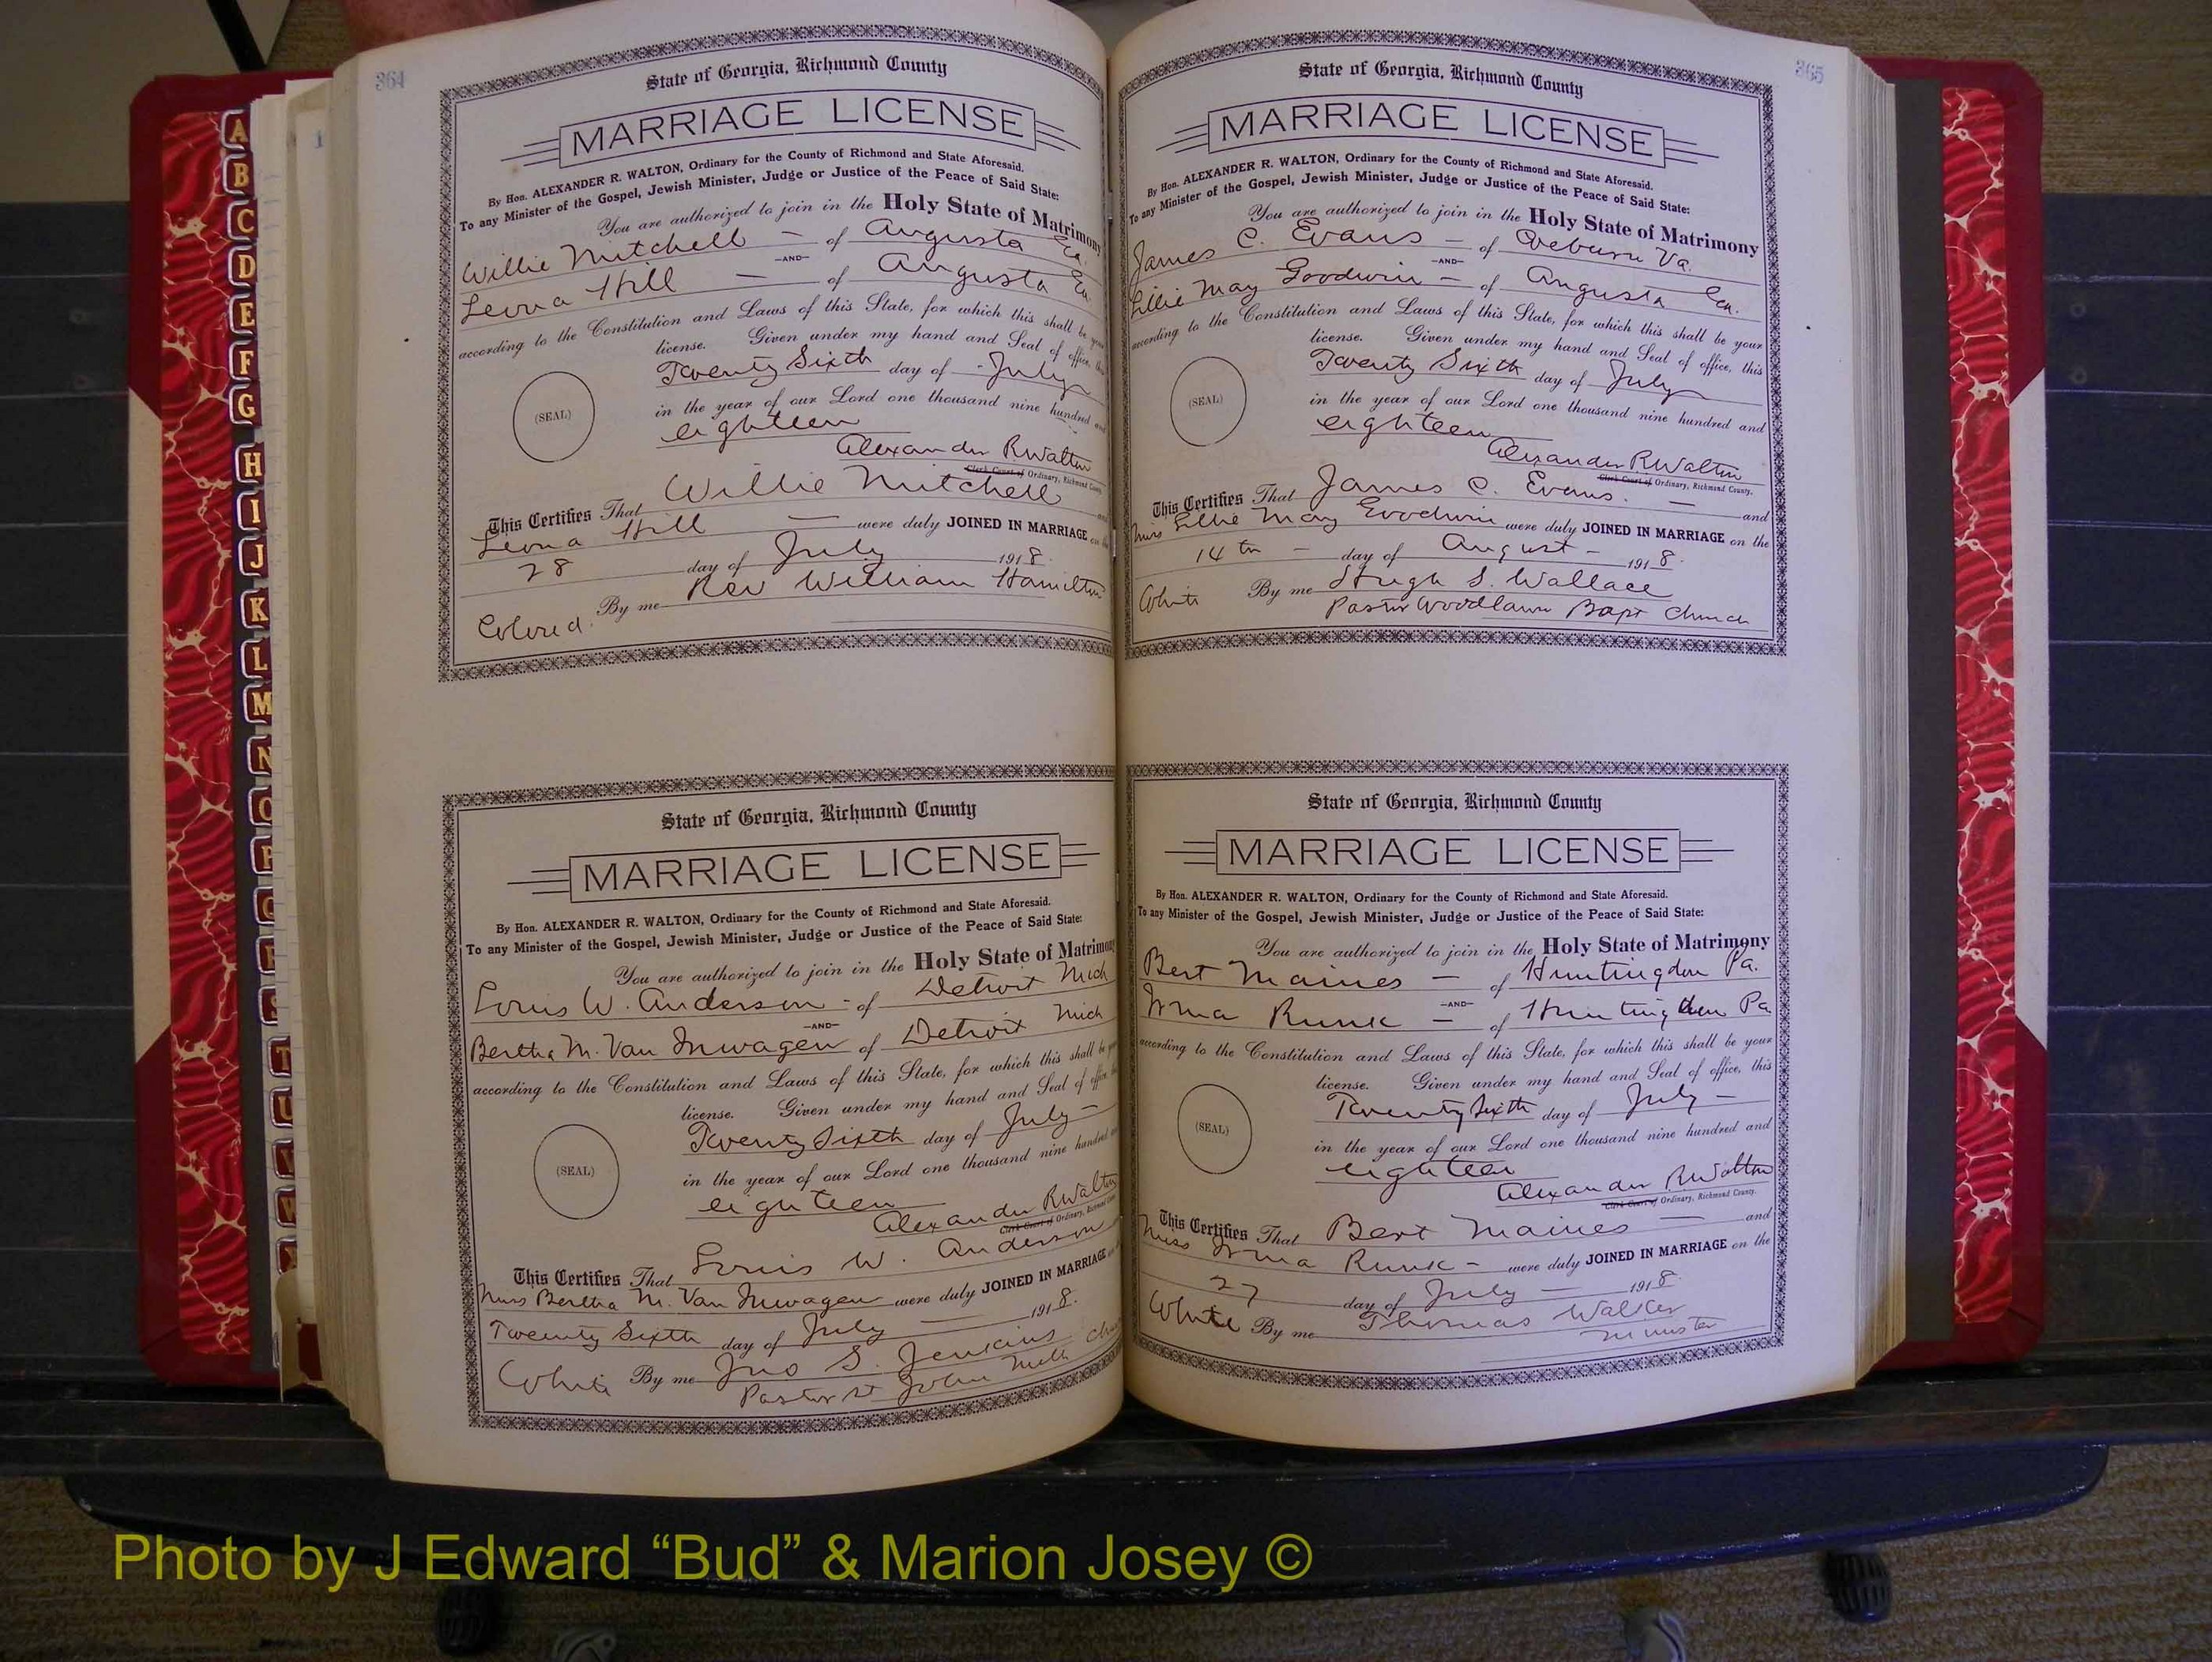 364
State of Georgia, Richmond County
MARRIAGE LICENSE
By Hon. ALEXANDER R. WALTON, Ordinary for the County of Richmond and State Aforesaid.
To any Minister of the Gospel, Jewish Minister, Judge or Justice of the Peace of Said State:
You are authorized to join in the Holy State of Matrimony
Willie Mitchell — of Augusta Ga.
—AND—
Leona Hill — of Augusta Ga.
according to the Constitution and Laws of this State, for which this shall be your
license. Given under my hand and Seal of office, this
Twenty Sixth day of July
(SEAL)
in the year of our Lord one thousand nine hundred and
eighteen
Alexander R Walton
Clerk Court of Ordinary, Richmond County.
This Certifies That Willie Mitchell and
Leona Hill — were duly JOINED IN MARRIAGE on the
28 day of July 1918.
Colored. By me Rev William Hamilton
State of Georgia, Richmond County
MARRIAGE LICENSE
By Hon. ALEXANDER R. WALTON, Ordinary for the County of Richmond and State Aforesaid.
To any Minister of the Gospel, Jewish Minister, Judge or Justice of the Peace of Said State:
You are authorized to join in the Holy State of Matrimony
Louis W. Anderson - of Detroit Mich
—AND—
Bertha M. Van Inwagen of Detroit Mich
according to the Constitution and Laws of this State, for which this shall be your
license. Given under my hand and Seal of office
Twenty Sixth day of July —
(SEAL)
in the year of our Lord one thousand nine hundred
eighteen
Alexander R Walton
Clerk Court of Ordinary, Richmond
This Certifies That Louis W. Anderson
Miss Bertha M. Van Inwagen were duly JOINED IN MARRIAGE
Twenty Sixth day of July — 1918.
White By me Jno S. Jenkins
Pastor St John Meth
365
State of Georgia, Richmond County
MARRIAGE LICENSE
By Hon. ALEXANDER R. WALTON, Ordinary for the County of Richmond and State Aforesaid.
To any Minister of the Gospel, Jewish Minister, Judge or Justice of the Peace of Said State:
You are authorized to join in the Holy State of Matrimony
James C. Evans — of Va.
—AND—
Lillie May Goodwin — of Augusta Ga.
according to the Constitution and Laws of this State, for which this shall be your
license. Given under my hand and Seal of office, this
Twenty Sixth day of July
(SEAL)
in the year of our Lord one thousand nine hundred and
eighteen
Alexander R Walton
Clerk Court of Ordinary, Richmond County.
This Certifies That James C. Evans. — and
Miss Lillie May Goodwin were duly JOINED IN MARRIAGE on the
14th — day of August — 1918.
White By me Hugh S. Wallace
Pastor Woodlawn Bapt Church
State of Georgia, Richmond County
MARRIAGE LICENSE
By Hon. ALEXANDER R. WALTON, Ordinary for the County of Richmond and State Aforesaid.
To any Minister of the Gospel, Jewish Minister, Judge or Justice of the Peace of Said State:
You are authorized to join in the Holy State of Matrimony
Bert Maines — of Huntingdon Pa.
—AND—
Irma Runk — of Huntingdon Pa
according to the Constitution and Laws of this State, for which this shall be your
license. Given under my hand and Seal of office, this
Twenty Sixth day of July —
(SEAL)
in the year of our Lord one thousand nine hundred and
eighteen
Alexander R Walton
Clerk Court of Ordinary, Richmond County.
This Certifies That Bert Maines — and
Miss Irma Runk - were duly JOINED IN MARRIAGE on the
27 day of July — 1918.
White By me Thomas Walker
Minister
A
B
C
D
E
F
G
H
I
J
K
L
M
N
O
P
Q
R
S
T
U
V
W
Photo by J Edward “Bud” & Marion Josey ©